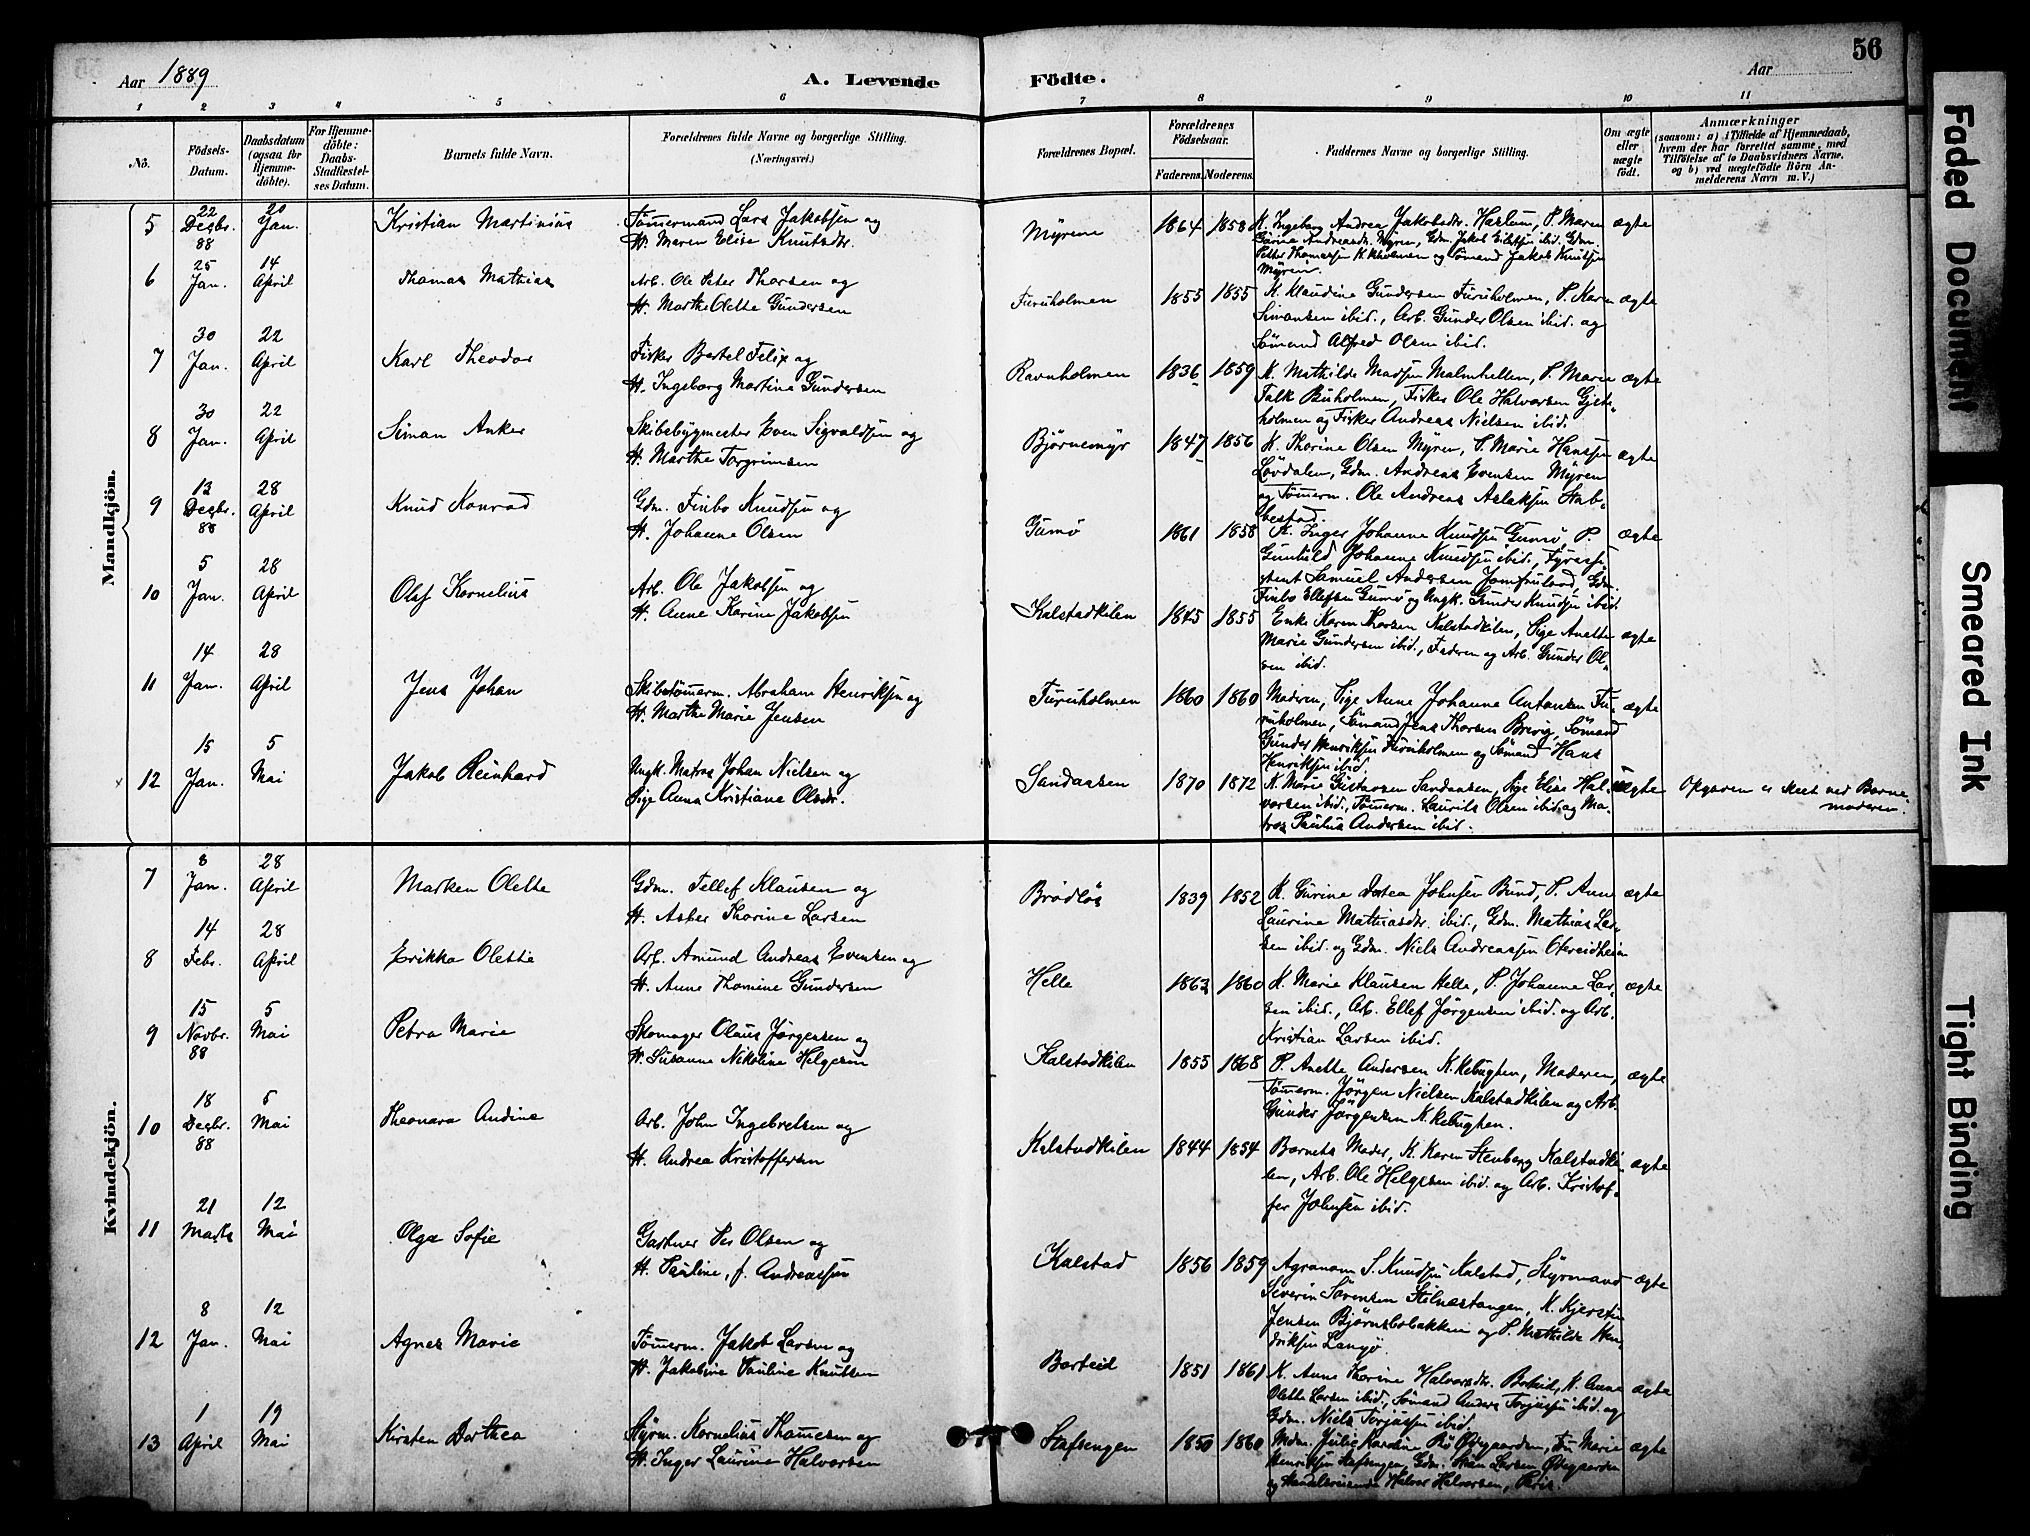 Aar 1889
A. Levende
Födte.
Aar
56
1 2 3 4 5 6 7 8 9 10 11
No.
Födsels-Datum.
Daabsdatum (ogsaa for Hjemme-döbte).
For Hjemme-döbte: Daabs-Stadfæstel-ses Datum.
Barnets fulde Navn.
Forældrenes fulde Navne og borgerlige Stilling. (Næringsvei.)
Forældrenes Bopæl.
Forældrenes Födselsaar.
Faderens. Moderens.
Faddernes Navne og borgerlige Stilling.
Om ægte eller uægte födt.
Anmærkninger
(saasom: a) i Tilfælde af Hjemmedaab, hvem der har forrettet samme, med Tilföielse af to Daabsvidners Navne, og b) ved uægtefödte Börn An-melderens Navn m. V.)
Mandkjön.
5 22 Decbr. 88 20 Jan. Kristian Martinius Tömermand Lars Jakobsen og
H. Maren Elise Knutsdr. Myrene 1864 1858 K. Ingeborg Andrea Jakobsdr. Haslum, P. Maren ægte
Gurine Andreasdr. Myren, Gdm. Jakob Eilertsen ibid. Gdm.
Petter Thomassen K. Kholmen og Sömand Jakob Knutsen
Myren.
6 25 Jan. 14 April Thomas Mathias Arb. Ole Peter Thorsen og
H. Marthe Olette Gundersen Furuholmen 1855 1855 K. Klaudine Gundersen Furuholmen, P. Karen ægte
Simonsen ibid., Arb. Gunder Olsen ibid. og
Sömand Alfred Olsen ibid.
7 30 Jan. 22 April Karl Theodor Fisker Bertel Felix og
H. Ingeborg Martine Gundersen Ravnholmen 1836 1859 K. Mathilde Madsen Malmhellen, P. Marie ægte
Falk Buholmen, Fisker Ole Halvorsen Gjete-
holmen og Fisker Andreas Nielsen ibid.
8 30 Jan. 22 April Simon Anker Skibsbygmester Even Sigvaldsen og
H. Marthe Torgrimsen Bjørnemyr 1847 1856 K. Thorine Olsen Myren, P. Marie Hanssen ægte
Lövdalen, Gdm. Andreas Evensen Myren
og Tömerm. Ole Andreas Aslaksen Stab-
bestad.
9 13 Decbr. 88 28 April Knud Konrad Gdm. Finbo Knudsen og
H. Johanne Olsen Gumø 1861 1858 K. Inger Johanne Knudsen Gumø, P. ægte
Gunhild Johanne Knudsen ibid., Fyrassi-
stent Samuel Andersen Jomfruland, Gdm.
Finbo Ellefsen Gumø og Ungk. Gunder Knudsen ibid.
10 5 Jan. 28 April Olaf Kornelius Arb. Ole Jakobsen og
H. Anne Karine Jakobsen Kalstadkilen 1845 1855 Enke Karen Thorsen Kalstadkilen, Pige Anette ægte
Marie Gundersen ibid., Faderen og Arb. Gunder Ol-
sen ibid.
11 14 Jan. 28 April Jens Johan Skibstömerm. Abraham Henriksen og
H. Marthe Marie Jensen Furuholmen 1860 1860 Moderen, Pige Anne Johanne Antonsen Fu- ægte
ruholmen, Sömand Jens Thorsen Brevig, Sömand
Gunder Henriksen Furuholmen og Sömand Hans
Henriksen ibid.
12 15 Jan. 5 Mai Jakob Reinhard Ungk. Matros Johan Nielsen og
Pige Anna Kristiane Olsdr. Sandaasen 1870 1872 K. Marie Gustavsen Sandaasen, Pige Elise Hal- uægte Opgaven er skeet ved Barne-
vorsen ibid., Tömerm. Laurits Olsen ibid. og Ma- moderen.
tros Paulus Andersen ibid.
Kvindekjön.
7 8 Jan. 28 April Marken Olette Gdm. Tellef Klausen og
H. Aster Thorine Larsen Brödløs 1839 1852 K. Gurine Dortea Johnsen Bund, P. Anne ægte
Laurine Mathiasdr. ibid., Gdm. Mathias Lar-
sen ibid. og Gdm. Niels Andreassen Ofereidheim
8 14 Febr. 28 April Erikka Olettie Arb. Amund Andreas Evensen og
H. Anne Thomine Gundersen Helle 1863 1860 K. Marie Klausen Helle, P. Johanne Lar- ægte
sen ibid., Arb. Ellef Jørgensen ibid. og Arb.
Kristian Larsen ibid.
9 15 Novbr. 88 5 Mai Petra Marie Skomager Olaus Jørgensen og
H. Susanne Nikoline Helgesen Kalstadkilen 1855 1868 P. Anette Andersen K.kebugten, Moderen, ægte
Tömerm. Jörgen Nielsen Kalstadkilen og Arb.
Gunder Jørgensen K.kebugten.
10 18 Decbr. 88 5 Mai Theonora Andine Arb. John Ingebretsen og
H. Andrea Kristoffersen Kalstadkilen 1844 1854 Barnets Moder, K. Karen Stenberg Kalstadki- ægte
len, Arb. Ole Helgesen ibid. og Arb. Kristof-
fer Johnsen ibid.
11 21 Marts 12 Mai Olga Sofie Gartner Per Olsen og
H. Pauline, f. Andreassen Kalstad 1856 1859 Agronom S. Knudsen Kalstad, Styrmand ægte
Severin Sørensen Stilnestangen, K. Kjerstin
Jensen Bjørnsbobakken og P. Mathilde Hen-
driksen Langø.
12 8 Jan. 12 Mai Agnes Marie Tömerm. Jakob Larsen og
H. Jakobine Pauline Knutsen Borteid 1851 1861 K. Anne Thorine Halvorsdr. Borteid, K. Anne ægte
Olette Larsen ibid., Sömand Anders Torjussen ibid. og
Gdm. Niels Torjussen ibid.
13 1 April 19 Mai Kirsten Dorthea Styrm. Kornelius Thomesen og
H. Inger Laurine Halvorsen Stafsengen 1850 1860 Mdm. Julie Karoline Rö Ødegaarden, Fru Marie ægte
Henriksen Stafsengen, Gdm. Lars Larsen Ødegaarden
og Handelsreisende Halvor Halvorsen, Paris.
Faded Document
Smeared Ink
Tight Binding